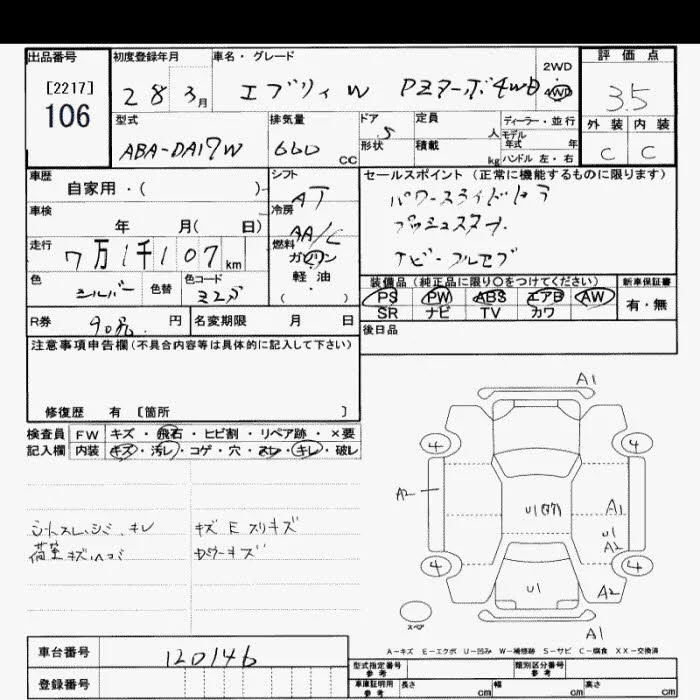 出品番号 初度登録年月 車名・グレード 評価点
[2217] 106
28 3月 エブリィW PZターボ4WD 2WD 4WD 3.5
型式 排気量 ドア 定員 ディーラー・並行 外装 内装
ABA-DA17W 660 CC 5 人 モデル年式 年 C C
形状 積載 kg ハンドル 左・右
車歴 シフト セールスポイント (正常に機能するものに限ります)
自家用・( ) AT パワースライドドア
車検 冷房 プッシュスタート
年 月( 日) AA/C
走行 燃料 ナビ フルセグ
7万1千107km ガソリン
色 色替 色コード 軽油 装備品 (純正品に限り○をつけてください) 新車保証書
シルバー ( ) PS PW ABS エアB AW 有・無
SR ナビ TV カワ
R券 円 名変期限 月 日 後日品
注意事項申告欄(不具合内容等は具体的に記入して下さい)
修復歴 有 [箇所 ]
検査員 FW キズ・飛石・ヒビ割・リペア跡・×要
記入欄 内装 キズ・汚レ・コゲ・穴・スレ・キレ・破レ
シートスレ、シミ、キレ
荷室キズ、ヘコミ
A1
4 4
A2 A1
U1 A2
4 4
U1 A2
スペア A1
A-キズ E-エクボ U-凹み W-補修跡 S-サビ C-腐食 XX-交換済
車台番号 120146 型式指定番号 参考 類別区分番号 参考
登録番号 車庫証明用 参考 長さ cm 幅 cm 高さ cm